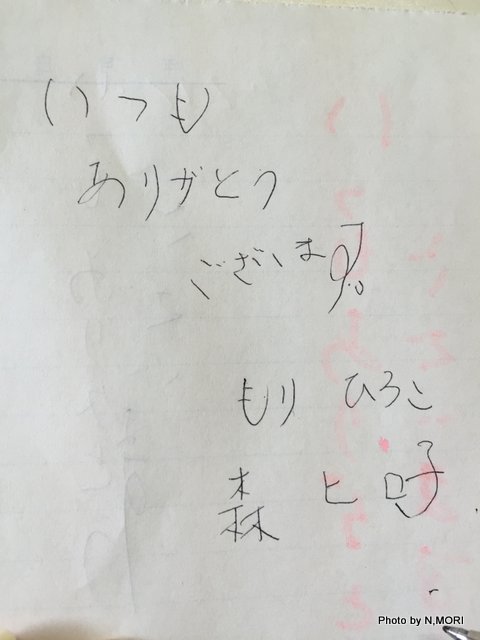 いつも
ありがとう
ございます。
もり ひろこ
森 ヒロ子
Photo by N,MORI